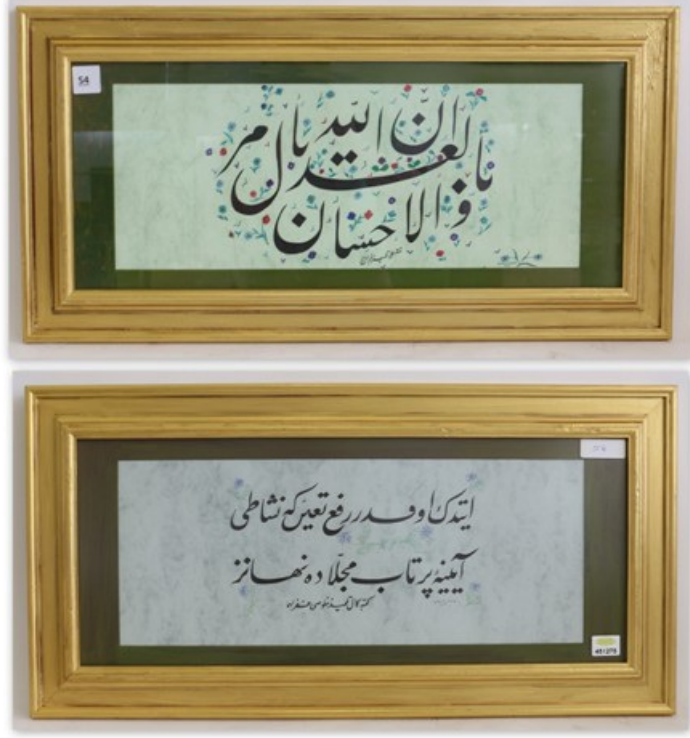 54
ان الله يأمر
بالعدل
والاحسان
ایتدك او قدر رفع تعین که نشاطی
آیینهٔ پرتاب مجلّاده نهانز